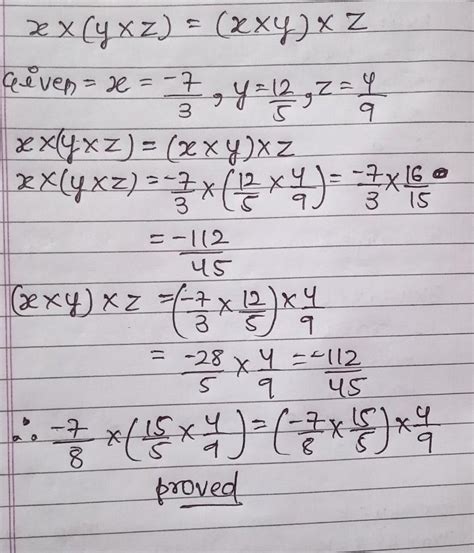 x×(y×z) = (x×y)×z
Given = x = -7/3, y = 12/5, z = 4/9
x×(y×z) = (x×y)×z
x×(y×z) = -7/3 × (12/5 × 4/9) = -7/3 × 16/15
= -112/45
(x×y)×z = (-7/3 × 12/5) × 4/9
= -28/5 × 4/9 = -112/45
∴ -7/8 × (15/5 × 4/9) = (-7/8 × 15/5) × 4/9
proved